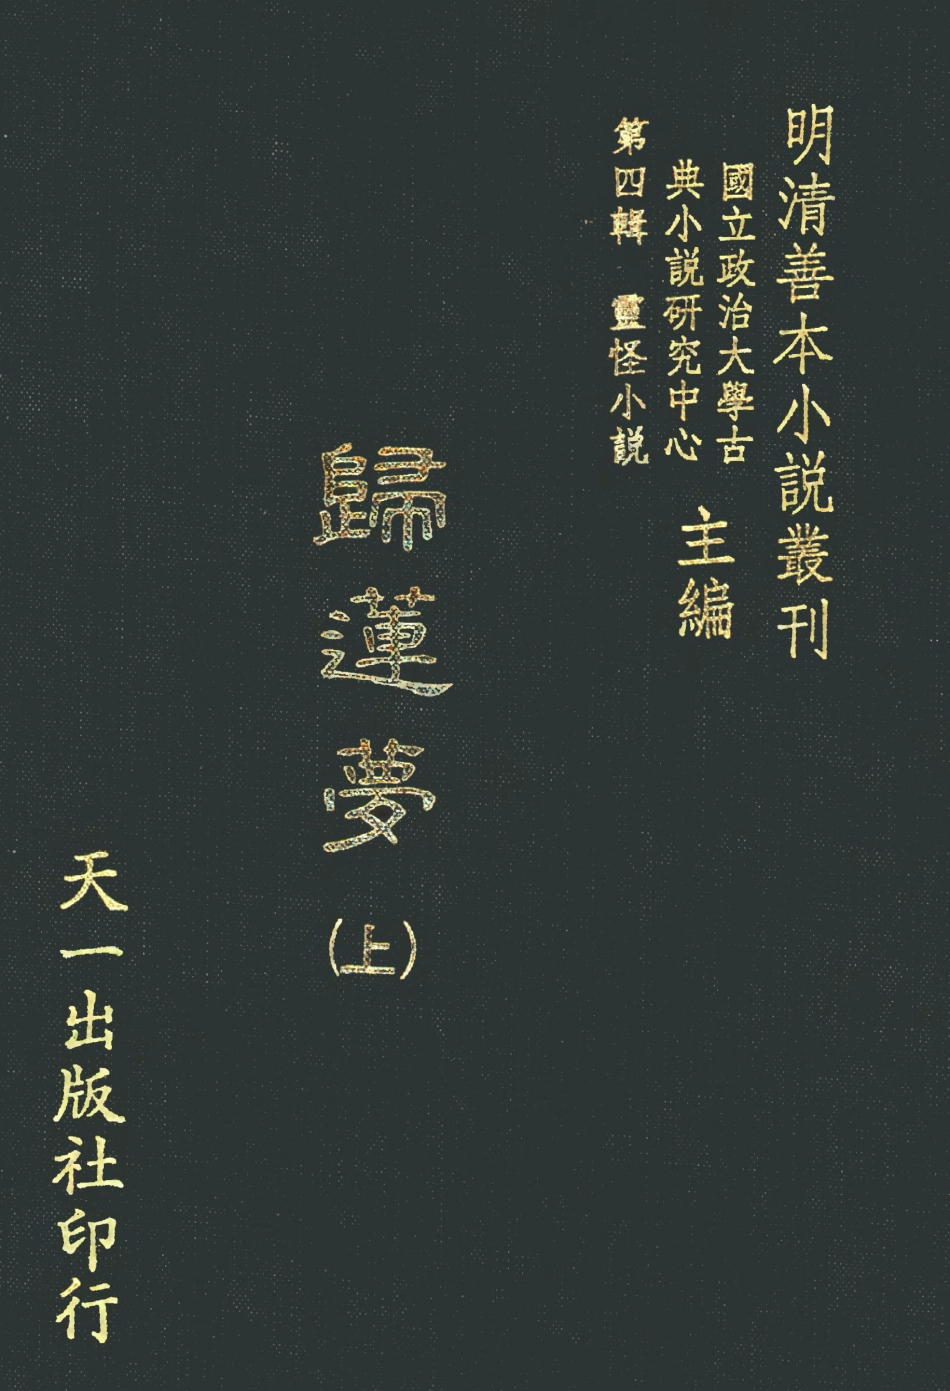 明清善本小説叢刊
國立政治大學古
典小説研究中心
主編
第四輯　靈怪小説
歸蓮夢(上)
天一出版社印行